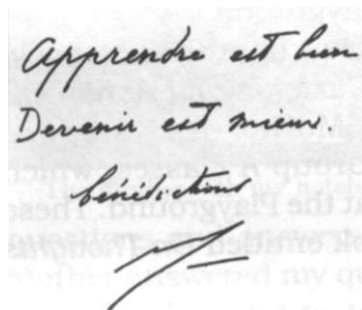 Apprendre est bien
Devenir est mieux.
bénédictions